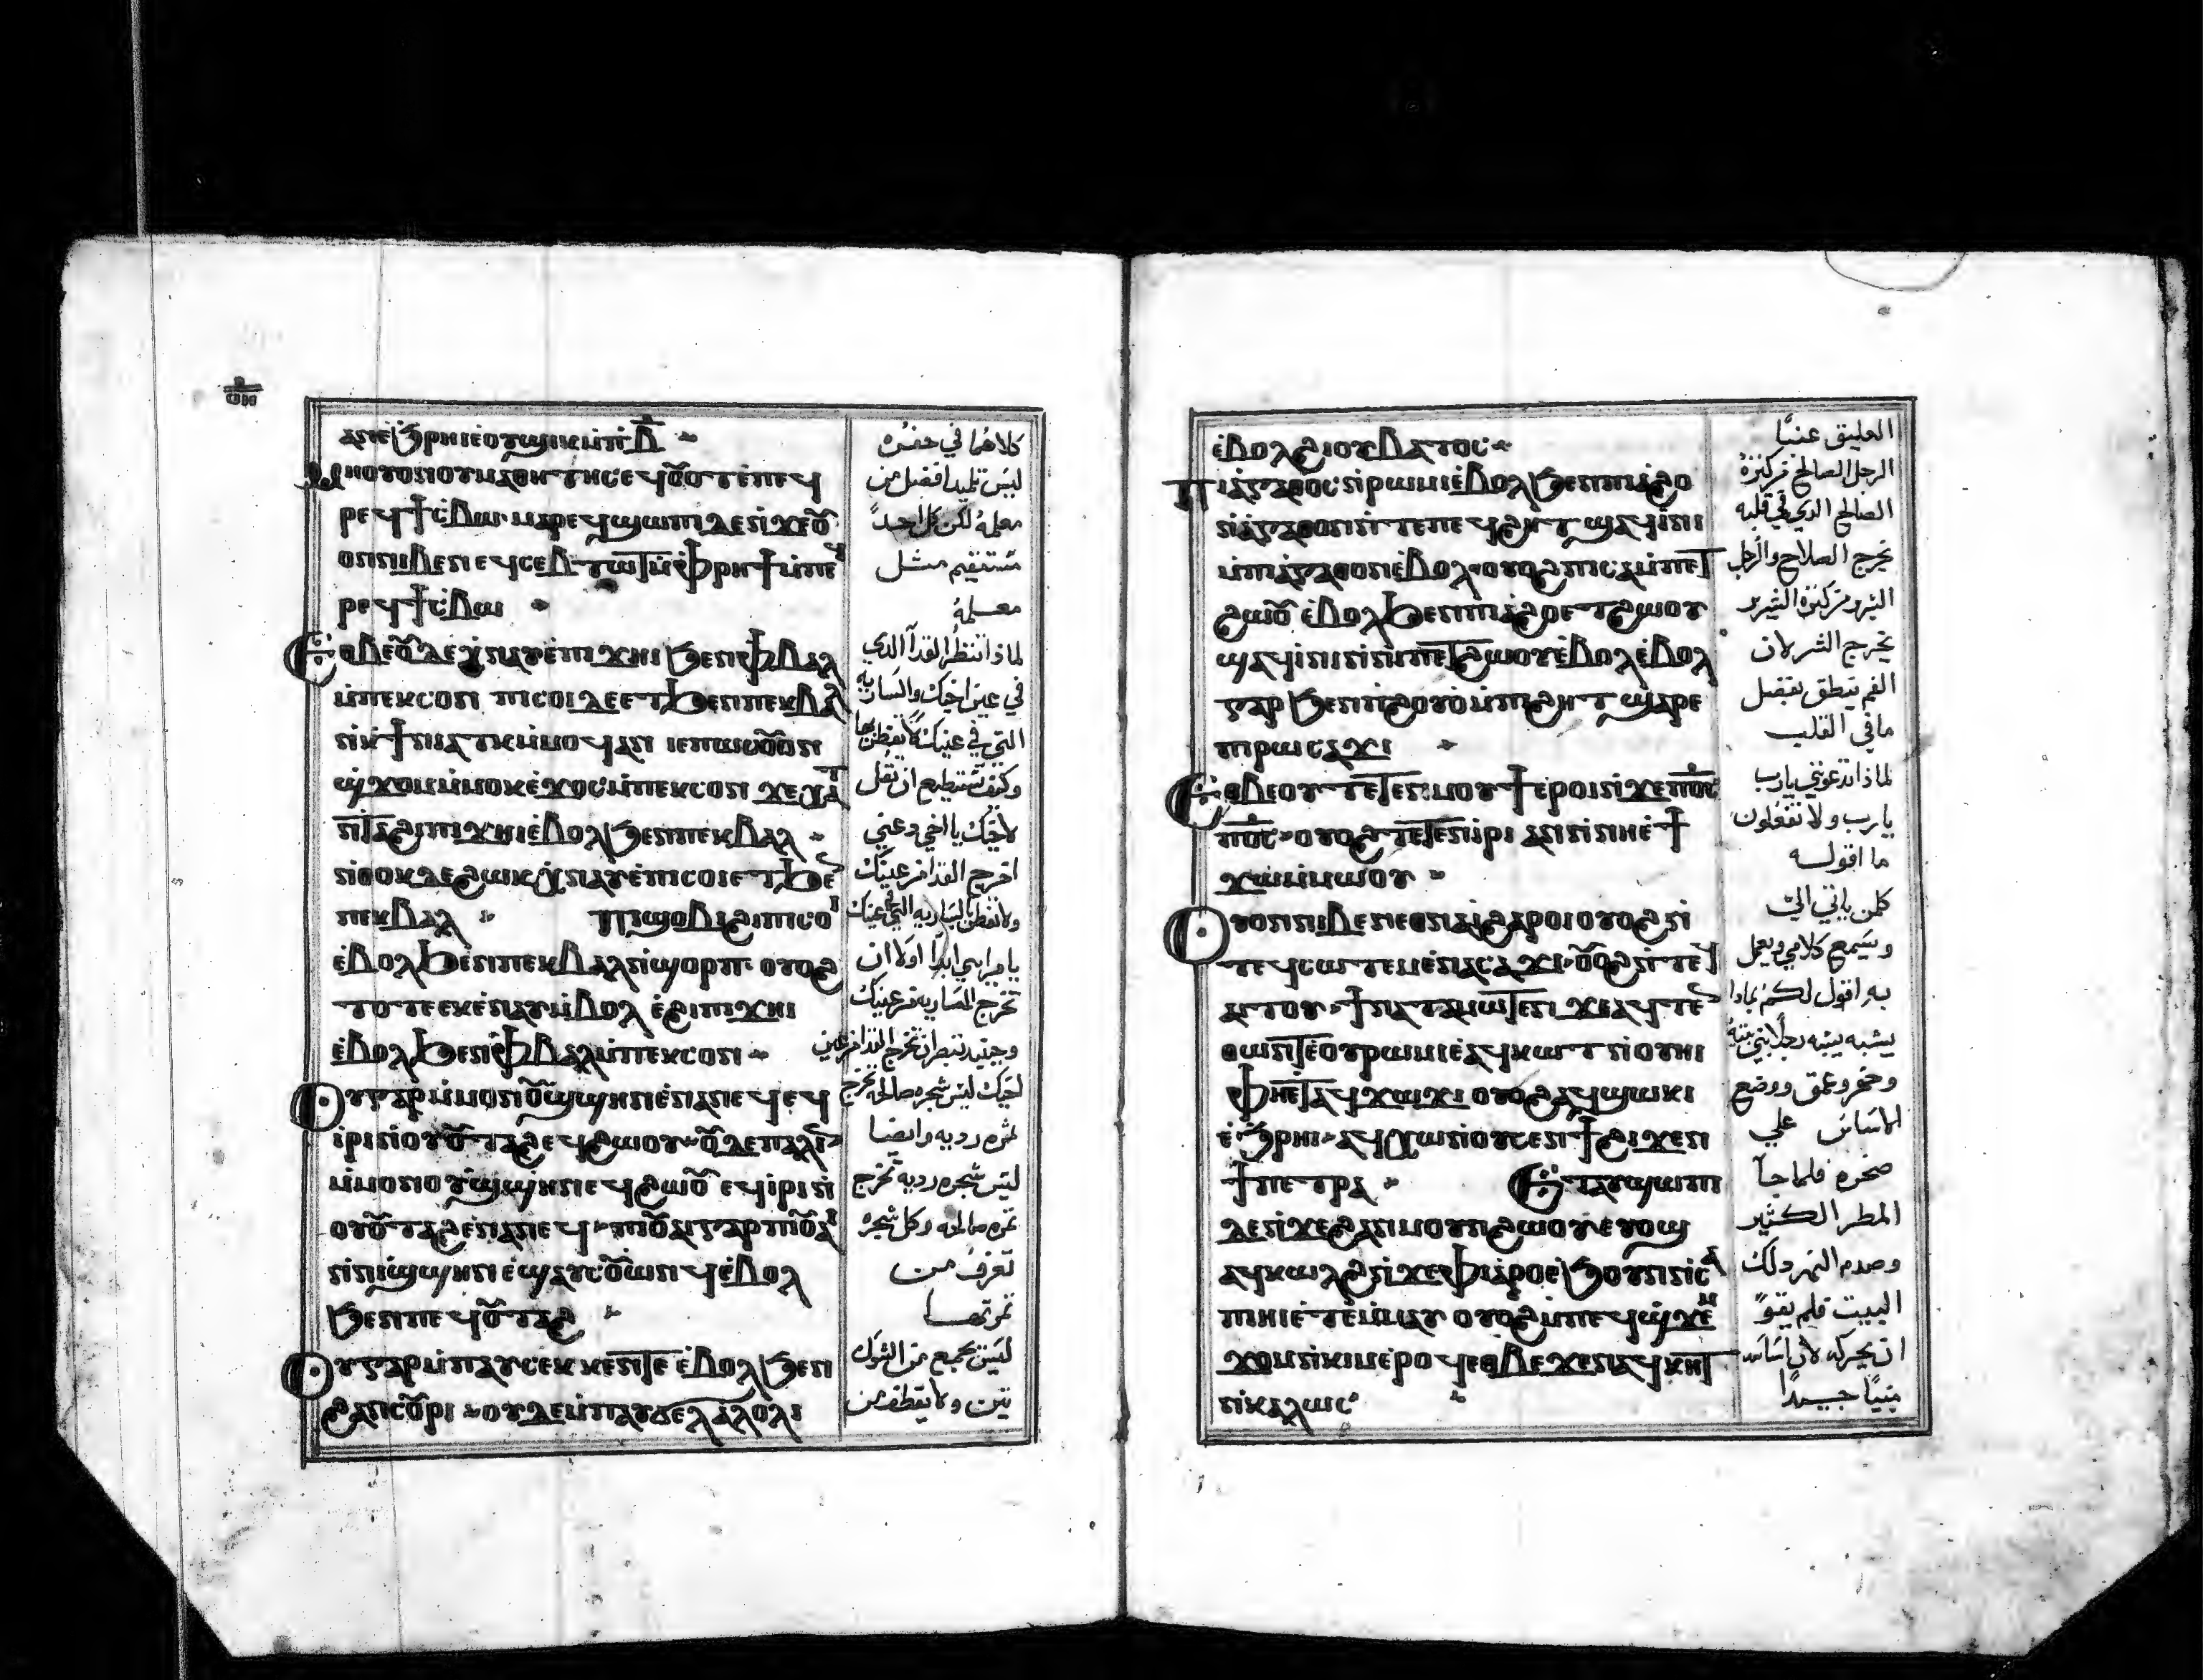 ⲁⲛⲉ̀ϧⲣⲏⲓⲉⲟⲩϣⲓⲕⲙ̀ⲡⲓⲃ̄
ⲙⲙⲟⲩⲟⲛⲟⲩⲙⲁⲑⲏⲧⲏⲥⲉϥⲟ̅ⲟⲧⲉ̀ⲡⲉϥ
ⲣⲉϥϯⲥ̀ⲃⲱ ⲙⲁⲣⲉϥϣⲱⲡⲓ ⲇⲉⲛ̀ϫⲉⲟ̅
ⲟⲛⲛⲓⲃⲉⲛ ⲉϥⲥⲉⲃⲧⲱⲧⲙ̀ⲫⲣⲏϯⲙ̀ⲡⲉϥ
ⲣⲉϥϯⲥ̀ⲃⲱ
ⲉⲑⲃⲉⲟ̅ⲇⲉⲭ̀ⲛⲁⲩⲉ̀ⲡⲓϫⲏⲓ ϧⲉⲛⲫ̀ⲃⲁⲗ
ⲙ̀ⲡⲉⲕⲥⲟⲛ ⲡⲓⲥⲟⲓⲇⲉⲉⲧϧⲉⲛⲡⲉⲕⲃⲁⲗ
ⲛ̀ⲕ̀ϯⲛⲓⲁⲧⲕⲙ̀ⲙⲟϥⲁⲛ ⲓⲉⲡⲱⲥⲟ̅ⲟⲛ
ϣ̀ϫⲟⲙⲙ̀ⲙⲟⲕⲉ̀ϫⲟⲥⲙ̀ⲡⲉⲕⲥⲟⲛ ϫⲉⲭⲁⲧ
ⲛ̀ⲧⲁϩⲓⲡⲓϫⲏⲓⲉ̀ⲃⲟⲗϧⲉⲛⲡⲉⲕⲃⲁⲗ
ⲛ̀ⲑⲟⲕⲇⲉϩⲱⲕⲭ̀ⲛⲁⲩⲉ̀ⲡⲓⲥⲟⲓⲉⲧϧⲉⲛ
ⲡⲉⲕⲃⲁⲗ ⲡⲓϣⲟⲃⲓϩⲓⲡⲓⲥⲟⲓ
ⲉ̀ⲃⲟⲗϧⲉⲛⲡⲉⲕⲃⲁⲗⲛ̀ϣⲟⲣⲡ ⲟⲩⲟϩ
ⲧⲟⲧⲉⲉⲕⲉ̀ⲛⲁⲩⲙ̀ⲃⲟⲗ ⲉ̀ϩⲓⲡⲓϫⲏⲓ
ⲉ̀ⲃⲟⲗϧⲉⲛⲫ̀ⲃⲁⲗⲙ̀ⲡⲉⲕⲥⲟⲛ
ⲟⲩⲅⲁⲣⲙ̀ⲙⲟⲛⲟ̅ϣ̀ϣⲏⲛⲉ̀ⲛⲁⲛⲉϥⲉϥ
ⲓⲣⲓⲛ̀ⲟⲩⲟ̅ⲧⲁϩⲉϥϩⲱⲟⲩ ⲟ̅ⲇⲉⲡⲁⲗⲓⲛ
ⲙ̀ⲙⲟⲛⲟⲩϣ̀ϣⲏⲛⲉϥϩⲱⲟ̅ ⲉϥⲓⲣⲓⲛ̀
ⲟⲩⲟ̅ⲧⲁϩⲉⲛⲁⲛⲉϥ ⲡⲓⲟ̅ⲁⲓⲅⲁⲣⲡⲓⲟ̅ⲁⲓ
ⲛ̀ⲛⲓϣ̀ϣⲏⲛ ⲉ̀ϣⲁⲩⲥⲟ̅ⲱⲛϥⲉ̀ⲃⲟⲗ
ϧⲉⲛⲡⲉϥⲟ̅ⲧⲁϩ
ⲟⲩⲅⲁⲣⲙ̀ⲡⲁⲩⲥⲉⲕⲕⲉⲛⲧⲉ ⲉ̀ⲃⲟⲗϧⲉⲛ
ϩⲁⲛⲥⲟ̅ⲣⲓ ⲟⲩⲇⲉⲙ̀ⲡⲁⲩϭⲉⲗⲁ̀ⲗⲟⲗⲓ
كلاهما في حفره
ليس تلميد افضل من
معلمه لكن كل احد
مستقيم مثل
معلمه
لماذا تنظر القدا الذي
في عين اخيك والساريه
التي في عينك لا تفطن بها
وكيف تستطيع ان تقل
لاخيك يا اخي دعني
اخرج القذا من عينك
ولا تفطن بالساريه التي في عينك
يا مرايي ابدا اولا ان
تخرج الصاريه من عينك
وحينيد تبصر ان تخرج القذا من عين
اخيك ليس شجره صالحه تخرج
ثمره رديه وايضا
ليس شجره رديه تخرج
ثمره صالحه وكل شجره
تعرف من
ثمرتها
ليس يجمع من الشوك
تين ولا يقطف من
ⲉ̀ⲃⲟⲗϩⲓⲟⲩⲃⲁⲧⲟⲥ
ⲡⲓⲁ̀ⲅⲁⲑⲟⲥⲛ̀ⲣⲱⲙⲓⲉ̀ⲃⲟⲗϧⲉⲛⲡⲓⲁ̀ϩⲟ
ⲛ̀ⲁ̀ⲅⲁⲑⲟⲛⲛ̀ⲧⲉⲡⲉϥϩⲏⲧϣⲁϥⲓ̀ⲛⲓ
ⲙ̀ⲡⲓⲁ̀ⲅⲁⲑⲟⲛⲉ̀ⲃⲟⲗ ⲟⲩⲟϩ ⲡⲓⲥⲁⲙ̀ⲡⲉⲧ
ϩⲱⲟ̅ ⲉ̀ⲃⲟⲗϧⲉⲛⲡⲓⲁ̀ϩⲟⲉⲧϩⲱⲟⲩ
ϣⲁϥⲓ̀ⲛⲓⲛ̀ⲛⲓⲡⲉⲧϩⲱⲟⲩⲉ̀ⲃⲟⲗⲉ̀ⲃⲟⲗ
ⲅⲁⲣϧⲉⲛⲡ̀ϩⲟⲩⲟ̀ⲙ̀ⲡⲓϩⲏⲧϣⲁⲣⲉ
ⲡⲓⲣⲱⲥⲁϫⲓ
ⲉⲑⲃⲉⲟⲩⲧⲉⲧⲉⲛⲙⲟⲩϯⲉⲣⲟⲓⲛ̀ϫⲉⲡⲟ̅ⲥ
ⲡⲟ̅ⲥ ⲟⲩⲟϩⲧⲉⲧⲉⲛⲓ̀ⲣⲓ ⲁⲛⲛ̀ⲛⲏⲉ̀ϯ
ϫⲱⲙ̀ⲙⲱⲟⲩ
ⲟⲩⲟⲛⲛⲓⲃⲉⲛⲉⲑⲛⲁⲓ̀ϩⲁⲣⲟⲓⲟⲩⲟϩⲛ̀
ⲧⲉϥⲥⲱⲧⲉⲙⲉ̀ⲛⲁⲥⲁϫⲓ ⲟ̅ⲟϩⲛ̀ⲧⲉϥ
ⲁⲓⲧⲟⲩ ϯⲛⲁⲧⲁⲙⲱⲧⲉⲛ ϫⲉⲁϥⲧⲉⲛ
ⲑⲱⲛⲧⲉ̀ⲟⲩⲣⲱⲙⲓⲉ̀ⲁϥⲕⲱⲧⲛ̀ⲟⲩⲏⲓ
ⲫⲏⲉⲧⲁϥϫⲱϫⲓ ⲟⲩⲟϩⲁϥϣⲱⲕⲓ
ⲉ̀ϧⲣⲏⲓ ⲁϥⲭⲱⲛ̀ⲟⲩⲥⲉⲛϯϩⲓϫⲉⲛ
ϯⲡⲉⲧⲣⲁ ⲉⲧⲁⲩϣⲱⲡⲓ
ⲇⲉⲛ̀ϫⲉϩⲁⲛⲙⲟⲩⲛϩⲱⲟⲩⲉⲩⲟϣ
ⲁϥⲕⲱⲗϩⲛ̀ϫⲉⲫⲓⲁⲣⲟⲉ̀ϧⲟⲩⲛⲛ̀ⲥⲁ
ⲡⲓⲏⲓⲉ̀ⲧⲉⲙ̀ⲙⲁⲩ ⲟⲩⲟϩⲙ̀ⲡⲉϥϣ̀ϫⲉⲙ
ϫⲟⲙⲛ̀ⲕⲓⲙⲉ̀ⲣⲟϥⲉⲑⲃⲉϫⲉⲛⲁϥⲕⲏⲧ
ⲛ̀ⲕⲁⲗⲱⲥ
العليق عنبا
الرجل الصالح من كنزه
الصالح الذي في قلبه
يخرج الصلاح والرجل
الشرير من كنزه الشرير
يخرج الشر لان
الفم ينطق بفضل
ما في القلب
لماذا تدعونني يارب
يارب ولا تفعلون
ما اقوله
كلمن ياتي الي
ويسمع كلامي ويعمل
به اقول لكم بماذا
يشبه يشبه رجلا بني بيته
وحفر وعمق ووضع
الاساس علي
صخره فلما جا
المطر الكثير
وصدم النهر ذلك
البيت فلم يقو
ان يحركه لان اساسه
مبنيا جيدا